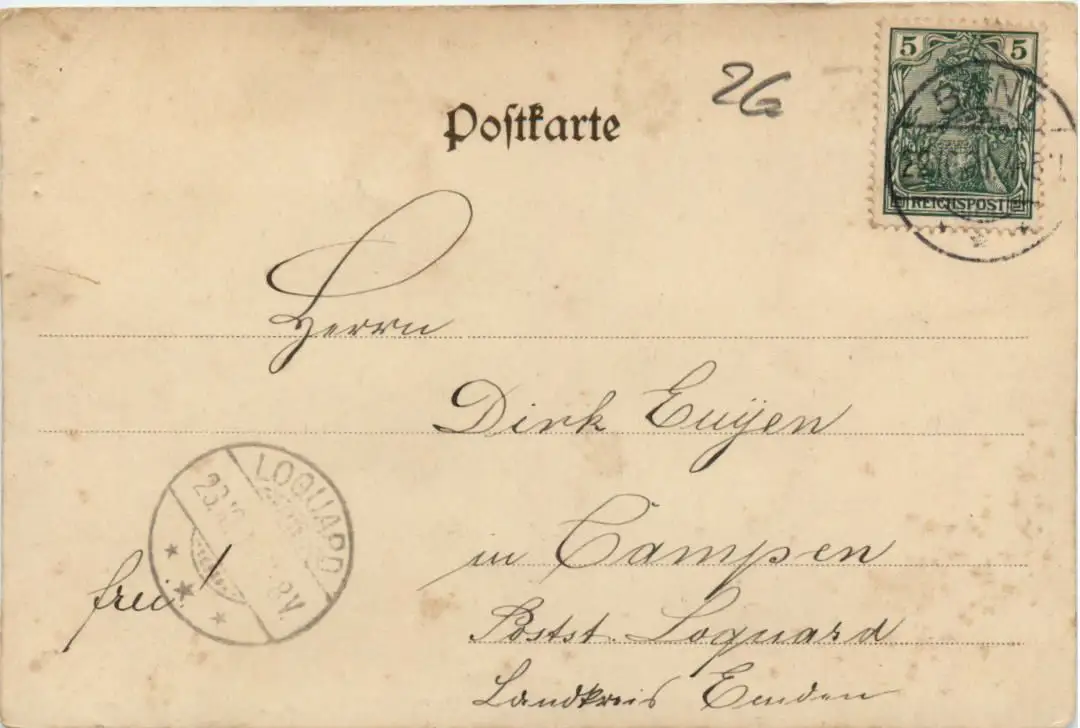 26
Postkarte
5 5
REICHSPOST
BANT
Herrn
Dirk Euyen
in Campen
Postst. Loquard
Landkreis Emden
frei!
LOQUARD
23.10.
8V.